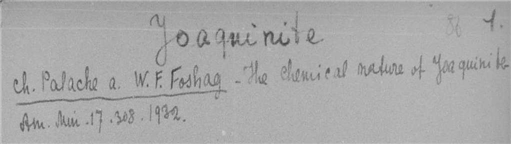 Joaquinite 1.
Ch. Palache a. W. F. Foshag - The chemical nature of Joaquinite
Am. Min. 17. 308. 1932.